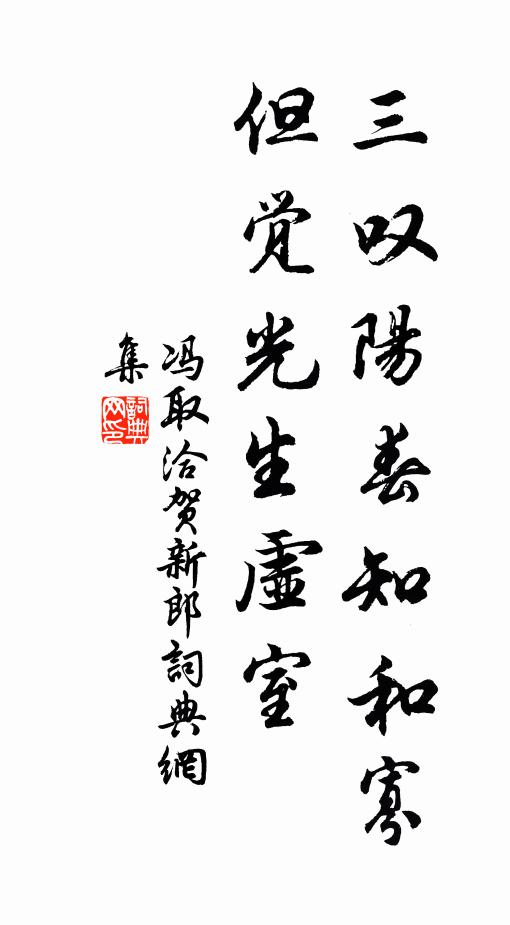 三叹陽春知和寡
但觉光生虛室
冯取洽贺新郎詞典網
集
詞典網印